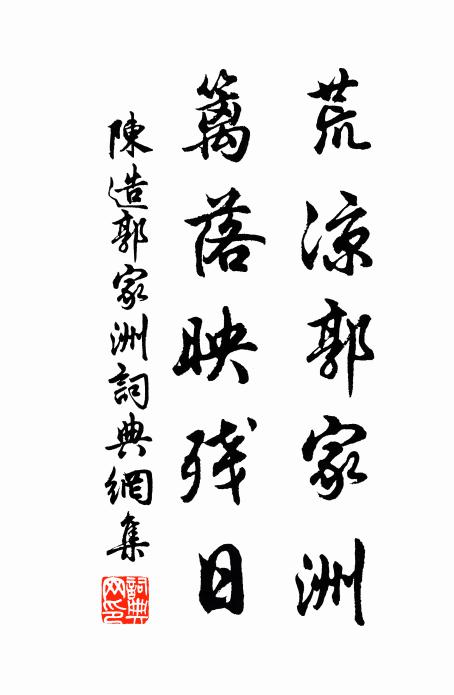 荒涼郭家洲
籬落映残日
陳造郭家洲詞典網集
詞典網印